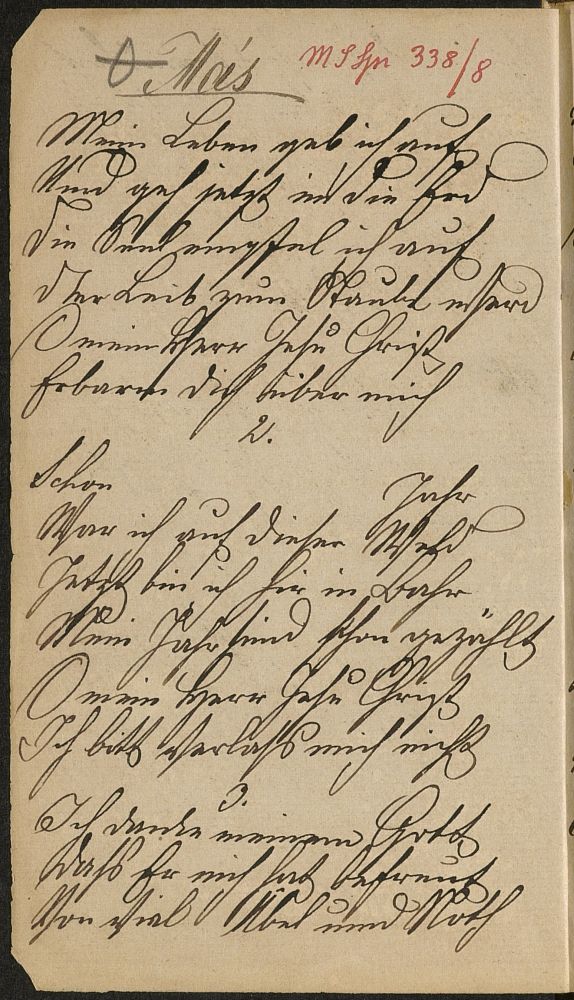 Más
338/8
Mein Leben geb ich auf
Und geh jetzt in die Erd
Die Seel empfel ich auf
Der Leib zum Staube werd
O mein Herr Jesu Christ
Erbarm dich über mich
2.
Schon Jahr
War ich auf dieser Weld
Jetzt bin ich hir in Bahr
Mein Jahr sind schon gezählt
O mein Herr Jesu Christ
Ich bitt verlass mich nicht
3.
Ich danke meinem Gott
Dass Er mich hat befreut
Von viel Übel und Noth